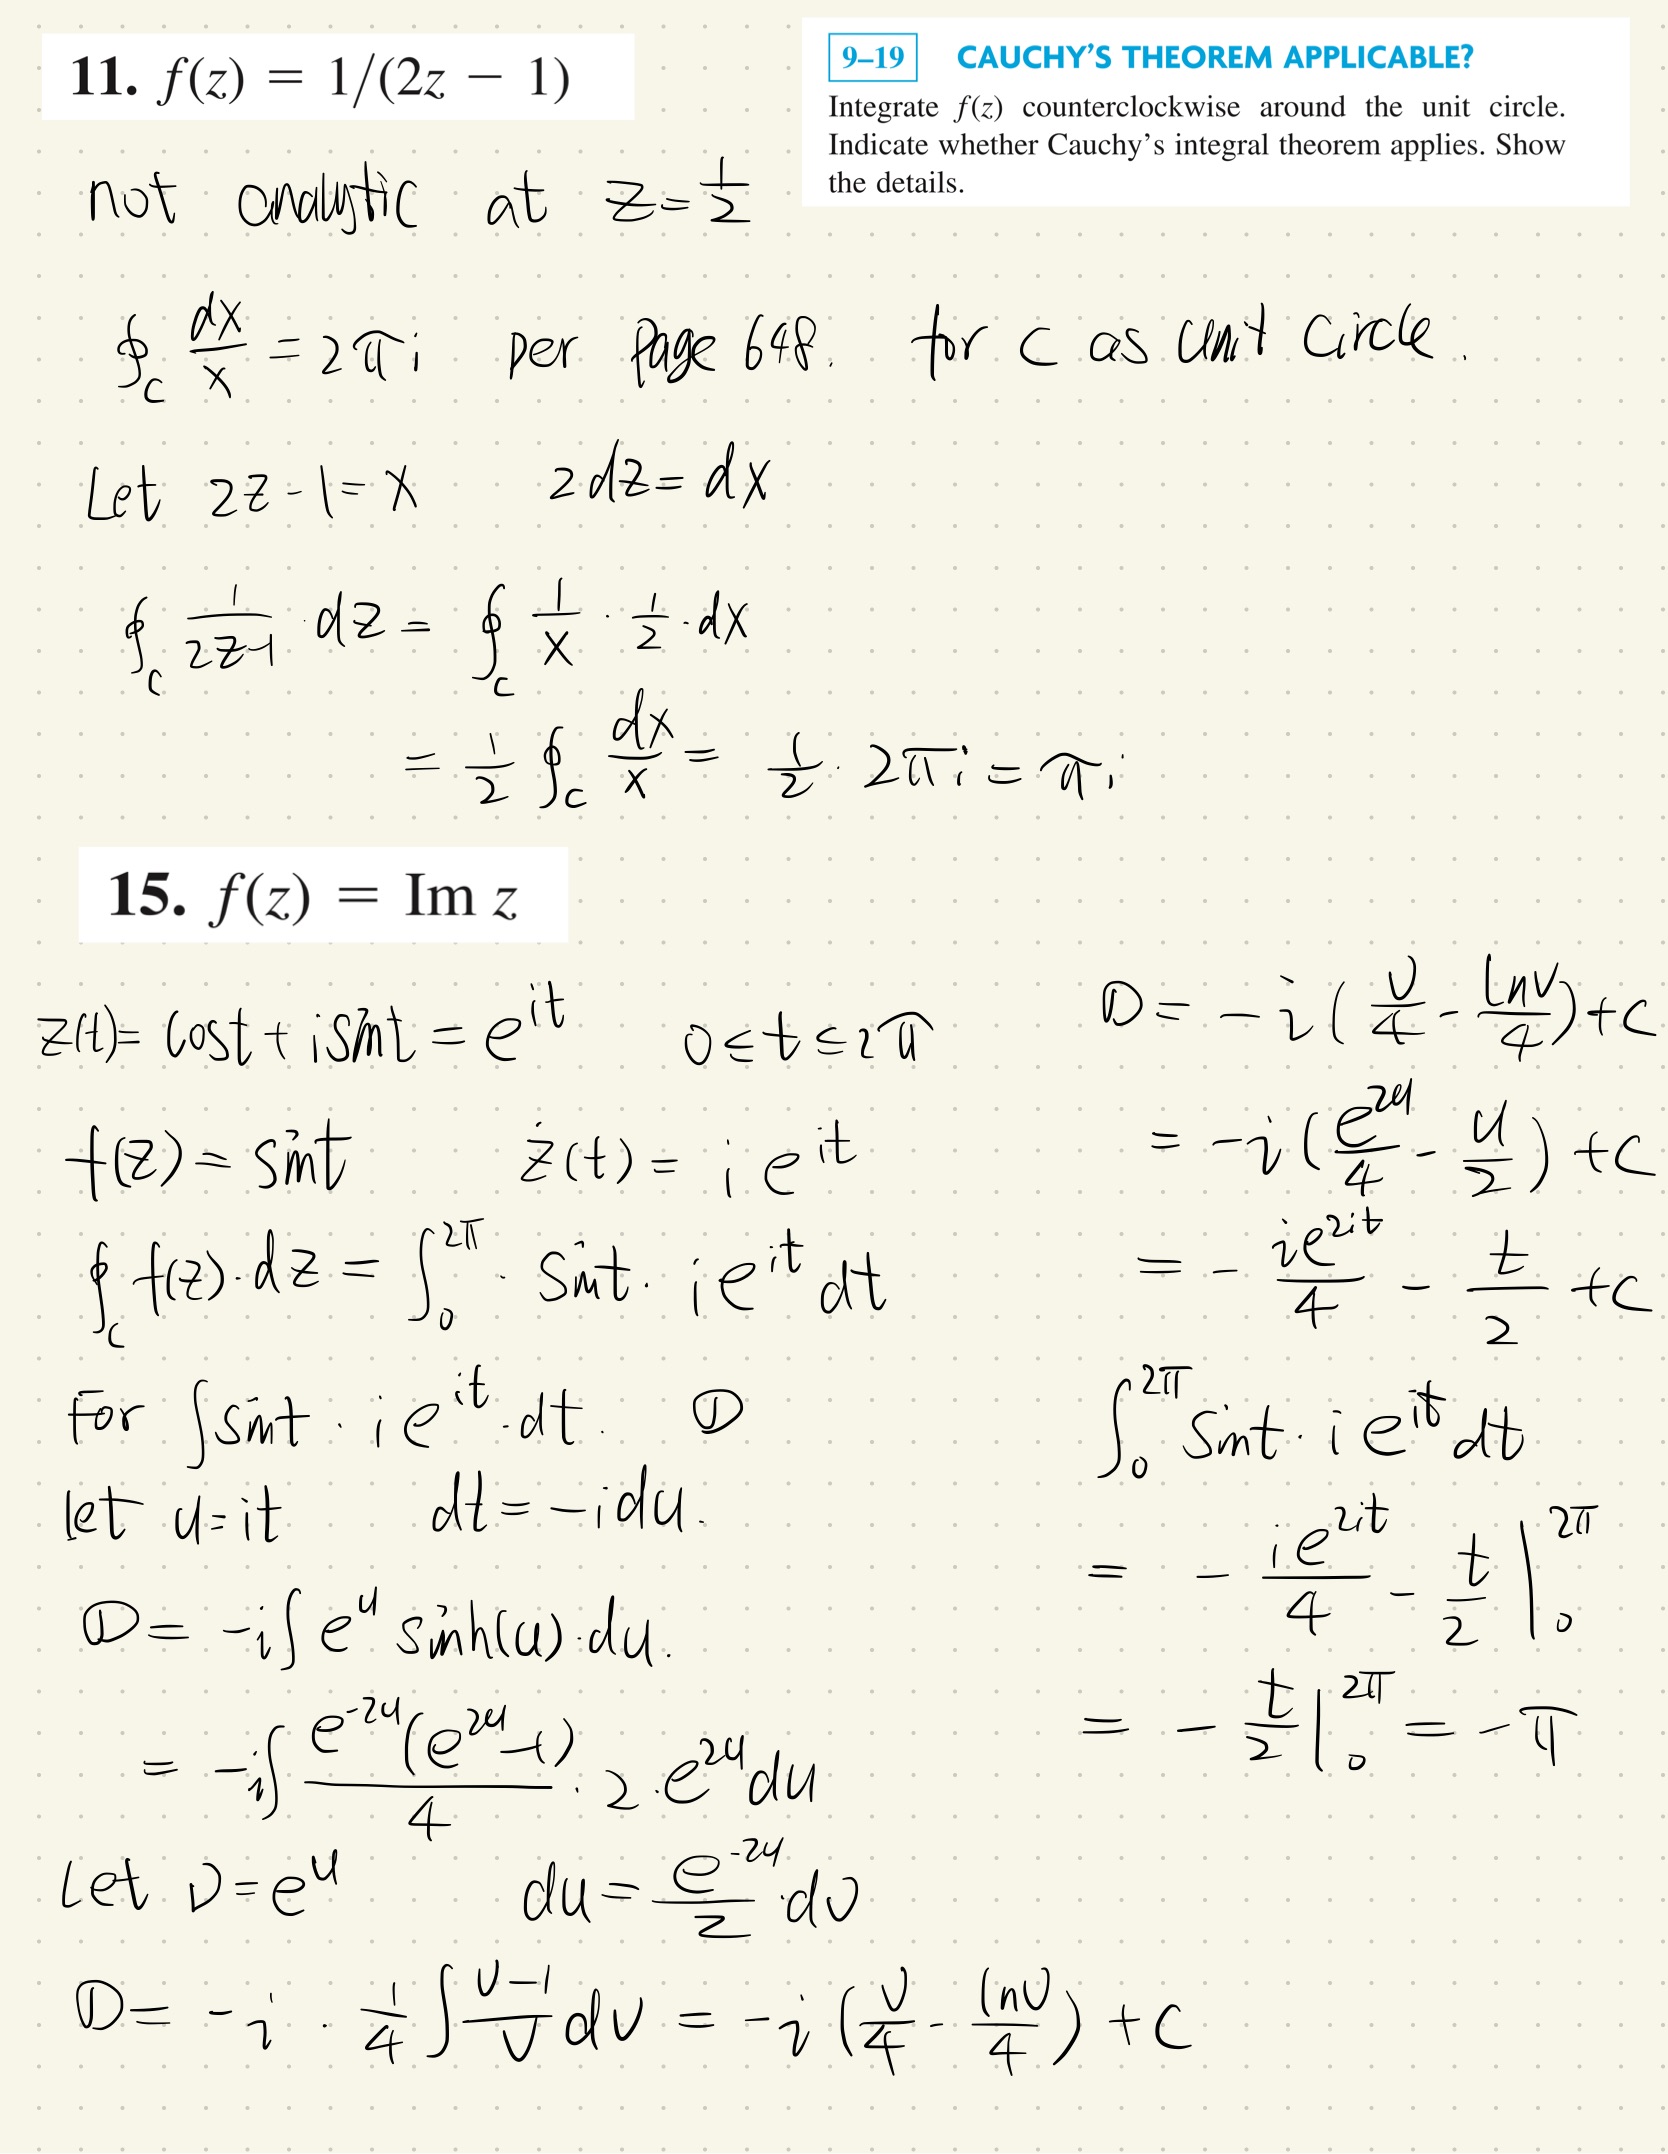 11. f(z) = 1/(2z − 1)
9–19 CAUCHY'S THEOREM APPLICABLE?
Integrate f(z) counterclockwise around the unit circle.
Indicate whether Cauchy's integral theorem applies. Show
the details.
not analytic at z = 1/2
∮_C dx/x = 2πi per Page 648. for C as unit circle.
Let 2z - 1 = x 2dz = dx
∮_C 1/(2z-1) · dz = ∮_C 1/x · 1/2 · dx
= 1/2 ∮_C dx/x = 1/2 · 2πi = πi
15. f(z) = Im z
z(t) = cost + isint = e^{it} 0 ≤ t ≤ 2π
f(z) = sint ż(t) = ie^{it}
∮_C f(z)·dz = ∫_0^{2π} · sint · ie^{it} dt
For ∫sint · ie^{it} · dt. ①
let u = it dt = -idu.
① = -i∫e^u sinh(u)·du.
= -i∫ e^{-2u}(e^{2u}-1)/4 · 2·e^{2u}du
Let v = e^u du = e^{-2u}/2 · dv
① = -i · 1/4 ∫ (v-1)/v dv = -i (v/4 - lnv/4) + c
① = -i (v/4 - lnv/4) + c
= -i (e^{2u}/4 - u/2) + c
= - ie^{2it}/4 - t/2 + c
∫_0^{2π} sint · ie^{it} dt
= - ie^{2it}/4 - t/2 |_0^{2π}
= - t/2 |_0^{2π} = -π